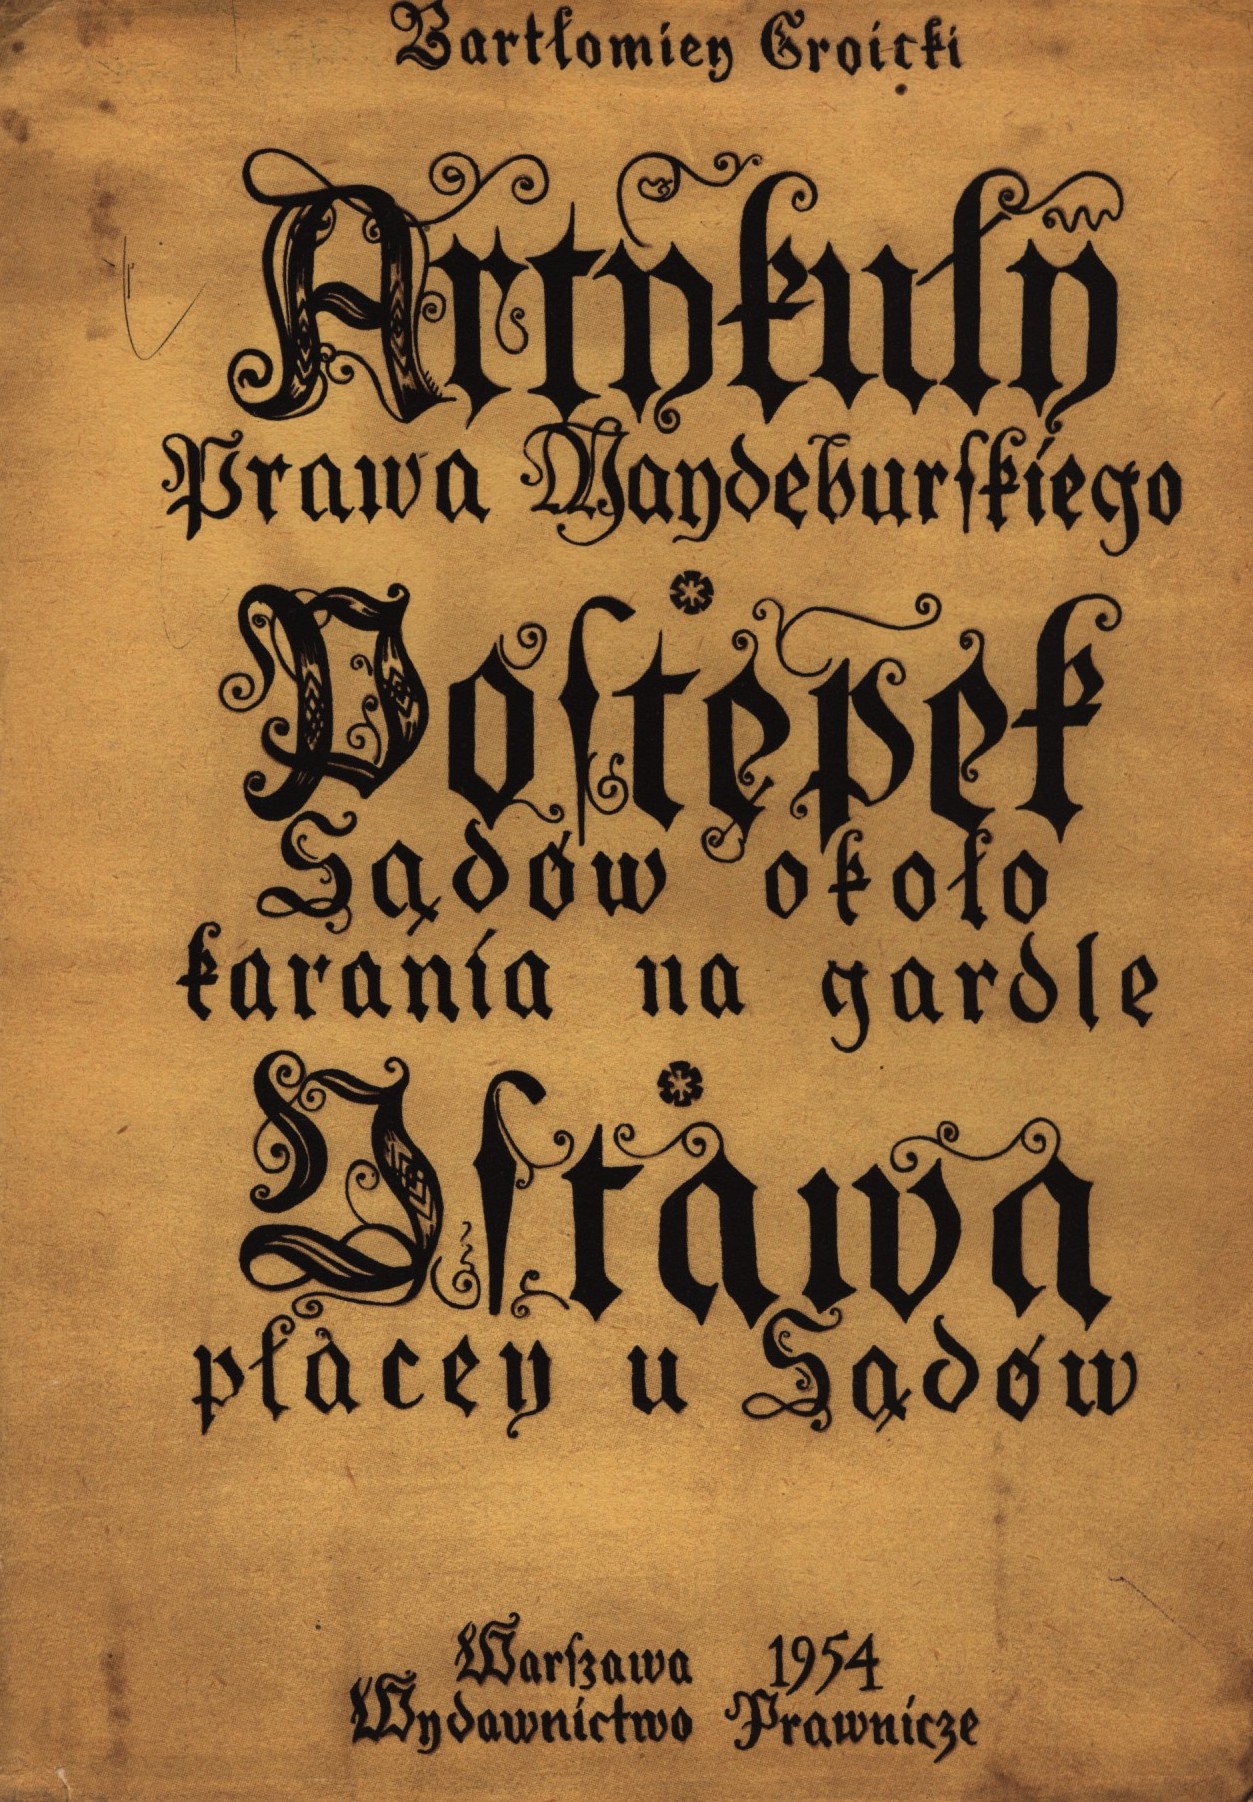 Bartłomiey Groicki
Artykuły
Prawa Maydeburskiego
Postępek
Sądów około
karania na gardle
Ustawa
płacey u Sądów
Warszawa 1954
Wydawnictwo Prawnicze